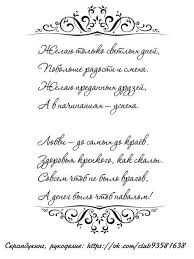 Желаю только светлых дней,
Побольше радости и смеха.
Желаю преданных друзей,
А в начинаниях – успеха.
Любви – до самых до краев.
Здоровья крепкого, как скалы.
Совсем чтоб не было врагов,
А денег было чтоб навалом!
Скрапбукинг, рукоделие: https://ok.com/club93581638